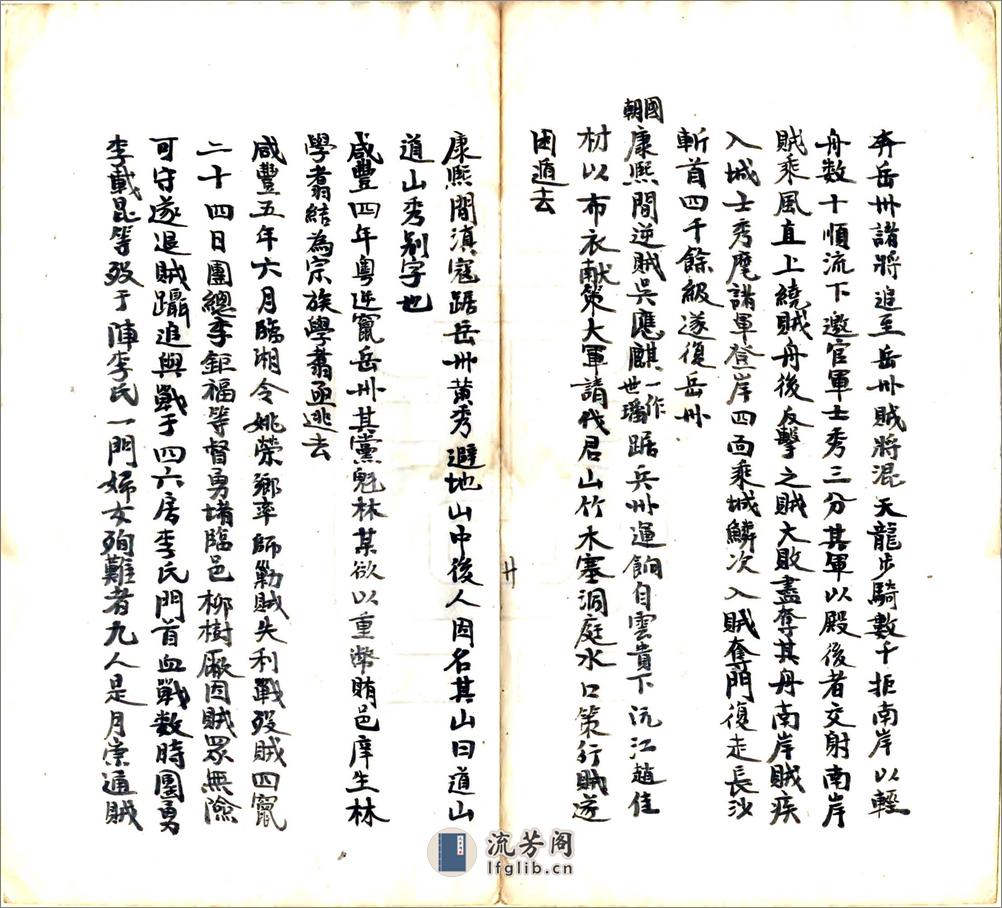 奔岳州諸將追至岳州賊將混天龍步騎數千拒南岸以輕
舟數十順流下邀官軍士秀三分其軍以殿後者交射南岸
賊乘風直上繞賊舟後反擊之賊大敗盡奪其舟南岸賊疾
入城士秀麾諸軍登岸四面乘城鱗次入賊奪門復走長沙
斬首四千餘級遂復岳州
國朝康熙間逆賊吳應麒一作世璠踞兵州運餉自雲貴下沅江趙佳
材以布衣献策大軍請伐君山竹木塞洞庭水口策行賊遂
困遁去
廾
康熙間滇寇踞岳州黄秀避地山中後人因名其山曰道山
道山秀别字也
咸豐四年粤逆竄岳州其黨魁林某欲以重幣賄邑庠生林
學翥結為宗族學翥亟逃去
咸豐五年六月臨湘令姚榮卿率師勦賊失利戰殁賊四竄
二十四日團總李鉅福等督勇堵臨邑柳樹厰因賊眾無險
可守遂退賊躡追與戰于四六房李氏門首血戰数時團勇
李載昆等殁于陣李氏一門婦女殉難者九人是月崇通賊
流芳阁
lfglib.cn